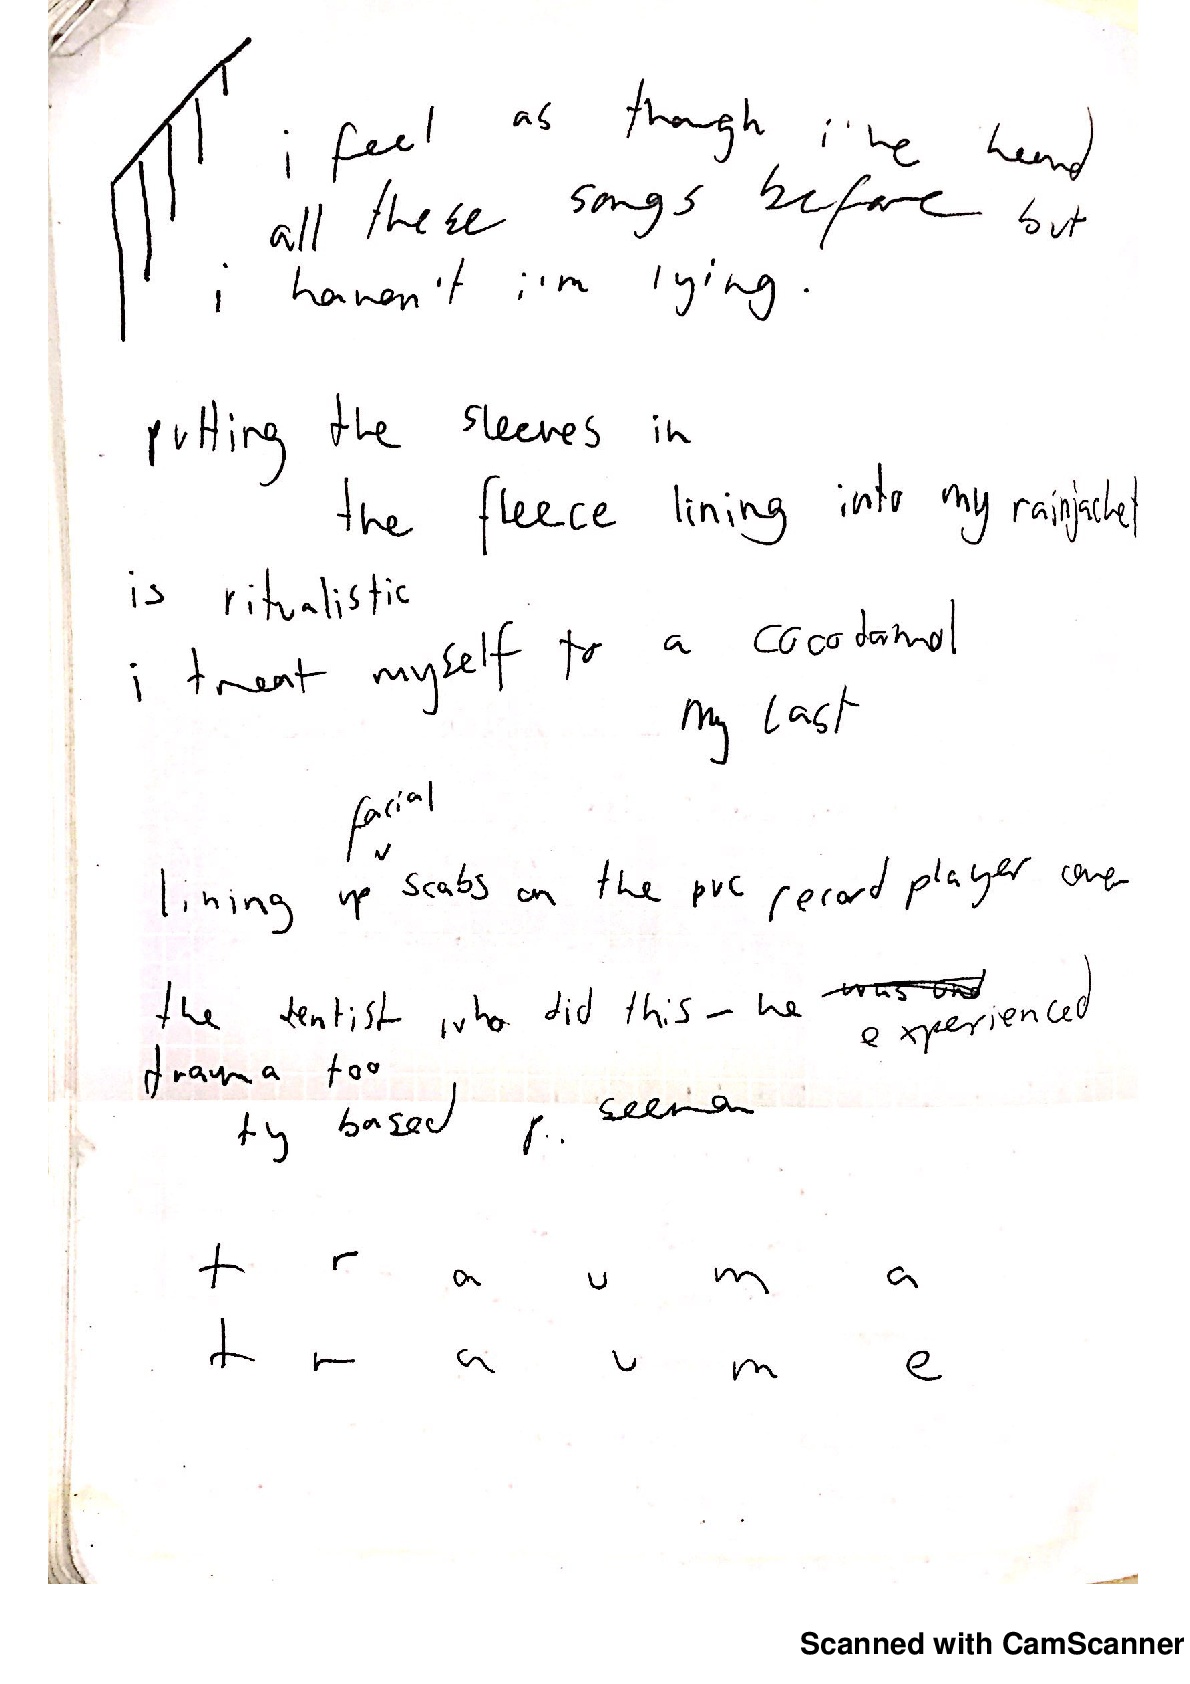 i feel as though i've heard
all these songs before but
i haven't i'm lying.
putting the sleeves in
the fleece lining into my rainjacket
is ritualistic
i treat myself to a cocodamol
my last
facial
lining up scabs on the pvc record player cover
the dentist who did this – he was and
experienced
trauma too
ty based p.. seeman
t r a u m a
t r a u m e
Scanned with CamScanner